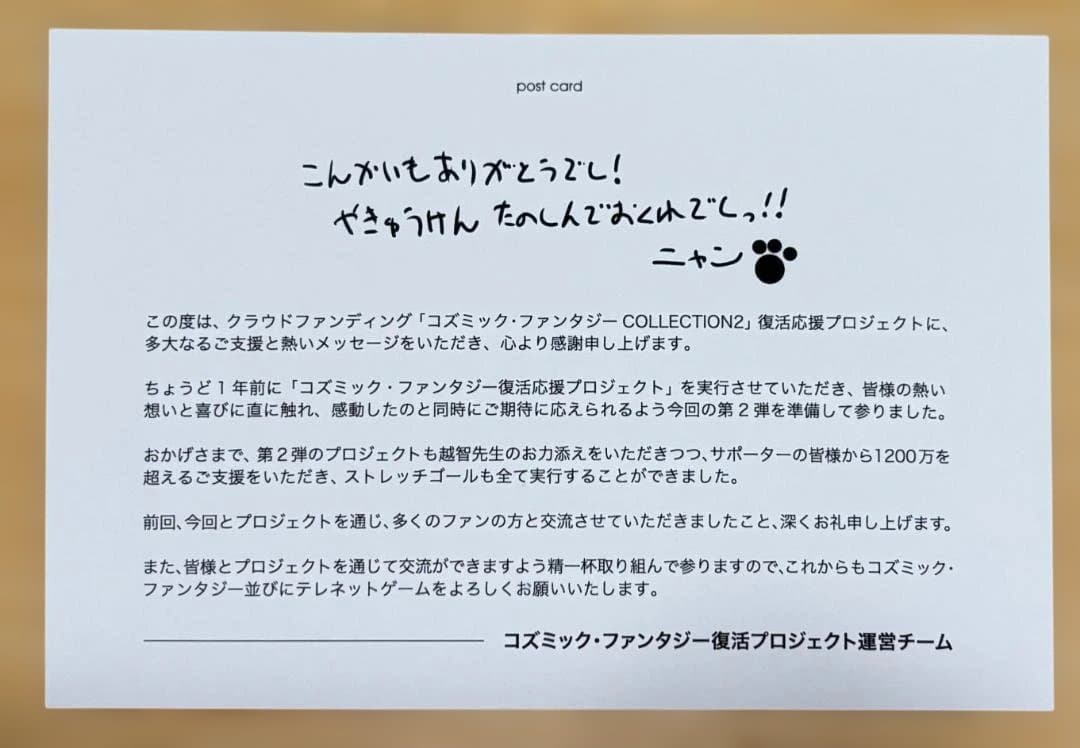 post card
こんかいもありがとうでし!
やきゅうけん たのしんでおくれでしっ!!
ニャン
この度は、クラウドファンディング「コズミック・ファンタジー COLLECTION2」復活応援プロジェクトに、
多大なるご支援と熱いメッセージをいただき、心より感謝申し上げます。
ちょうど1年前に「コズミック・ファンタジー復活応援プロジェクト」を実行させていただき、皆様の熱い
想いと喜びに直に触れ、感動したのと同時にご期待に応えられるよう今回の第2弾を準備して参りました。
おかげさまで、第2弾のプロジェクトも越智先生のお力添えをいただきつつ、サポーターの皆様から1200万を
超えるご支援をいただき、ストレッチゴールも全て実行することができました。
前回、今回とプロジェクトを通じ、多くのファンの方と交流させていただきましたこと、深くお礼申し上げます。
また、皆様とプロジェクトを通じて交流ができますよう精一杯取り組んで参りますので、これからもコズミック・
ファンタジー並びにテレネットゲームをよろしくお願いいたします。
コズミック・ファンタジー復活プロジェクト運営チーム